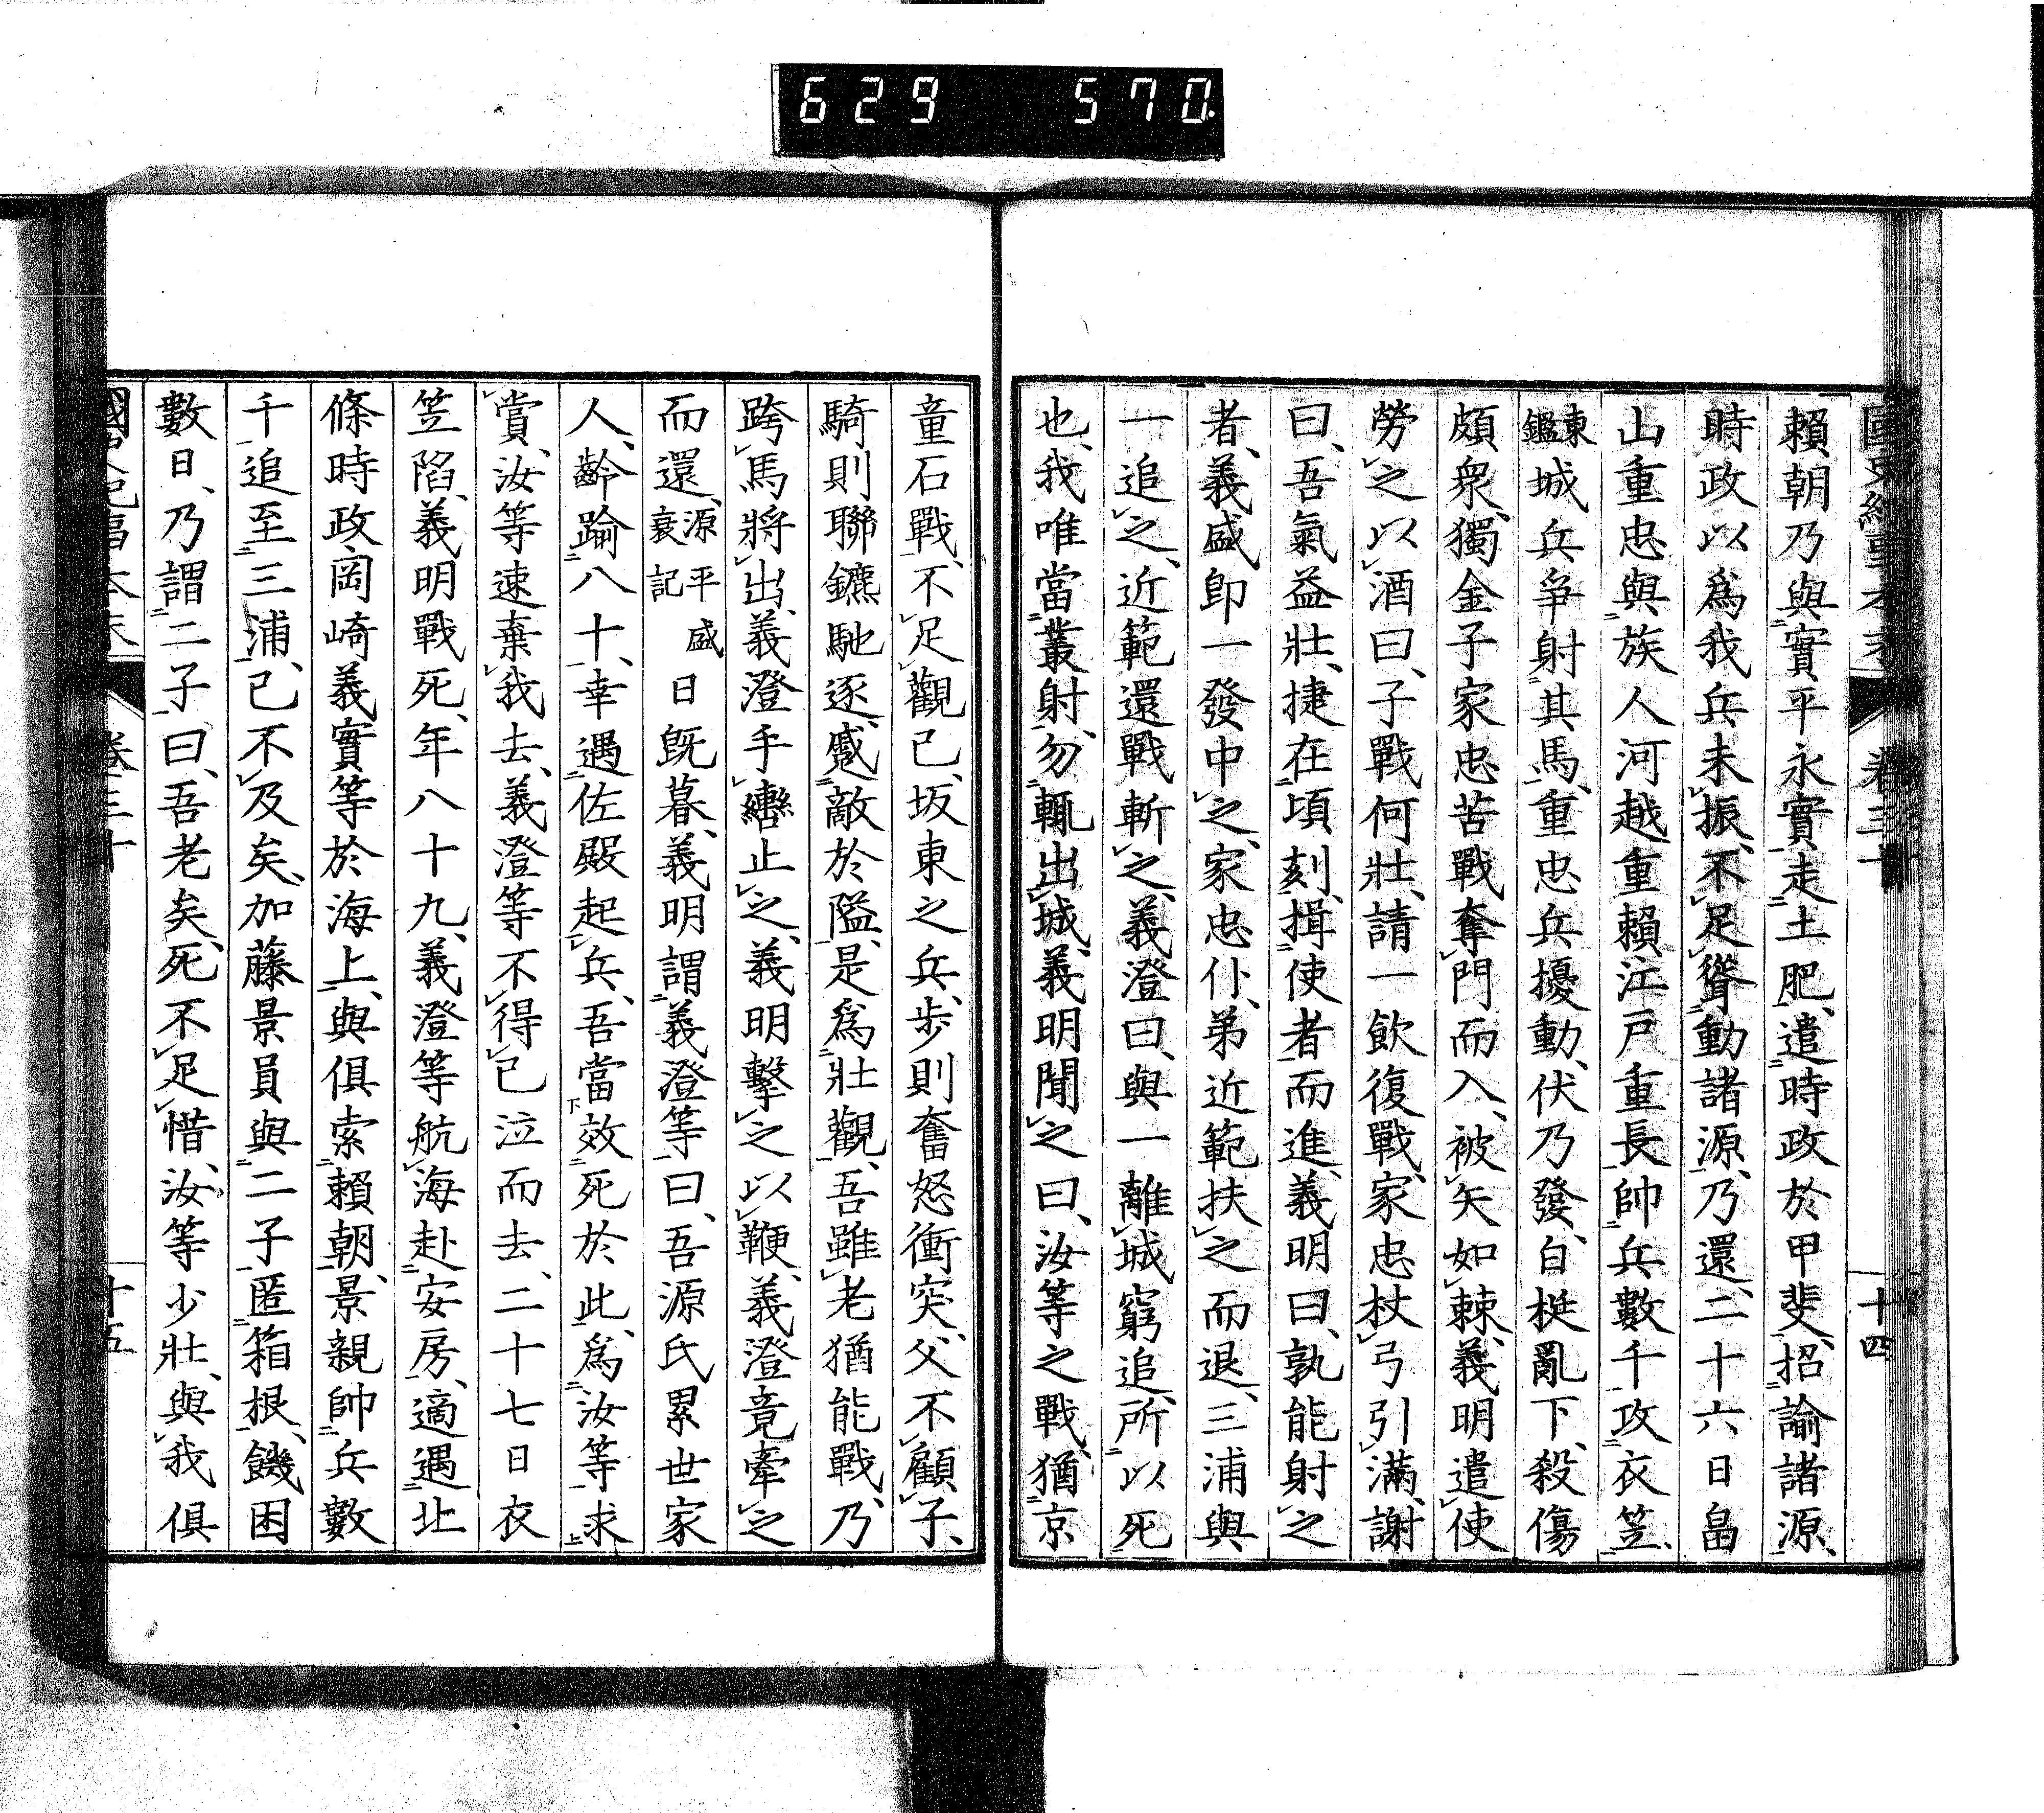 629 570
國史紀事本末 卷三十 十四
賴朝乃與實平永實走土肥、遣時政於甲斐、招諭諸源、
時政以爲我兵未振、不足聳動諸源、乃還、二十六日畠
山重忠與族人河越重賴江戸重長帥兵數千攻衣笠、
東鑑城兵爭射其馬、重忠兵擾動、伏乃發、白梃亂下、殺傷
頗衆、獨金子家忠苦戰奪門而入、被矢如棘、義明遣使
勞之以酒曰、子戰何壯、請一飲復戰、家忠杖弓引滿、謝
曰、吾氣益壯、捷在頃刻、揖使者而進、義明曰、孰能射之
者、義盛卽一發中之、家忠仆、弟近範扶之而退、三浦與
一追之、近範還戰斬之、義澄曰、與一離城窮追、所以死
也、我唯當叢射、勿輒出城、義明聞之曰、汝等之戰、猶京
童石戰、不足觀已、坂東之兵、步則奮怒衝突、父不顧子、
騎則聯鑣馳逐、蹙敵於隘、是爲壯觀、吾雖老猶能戰、乃
跨馬將出、義澄手轡止之、義明擊之以鞭、義澄竟牽之
而還、源平盛衰記日既暮、義明謂義澄等曰、吾源氏累世家
人、齡踰八十、幸遇佐殿起兵、吾當效死於此、爲汝等求
賞、汝等速棄我去、義澄等不得已泣而去、二十七日衣
笠陷、義明戰死、年八十九、義澄等航海赴安房、適遇北
條時政岡崎義實等於海上、與俱索賴朝、景親帥兵數
千追至三浦、已不及矣、加藤景員與二子匿箱根、饑困
數日、乃謂二子曰、吾老矣、死不足惜、汝等少壯、與我俱
國史紀事本末 卷三十 十五